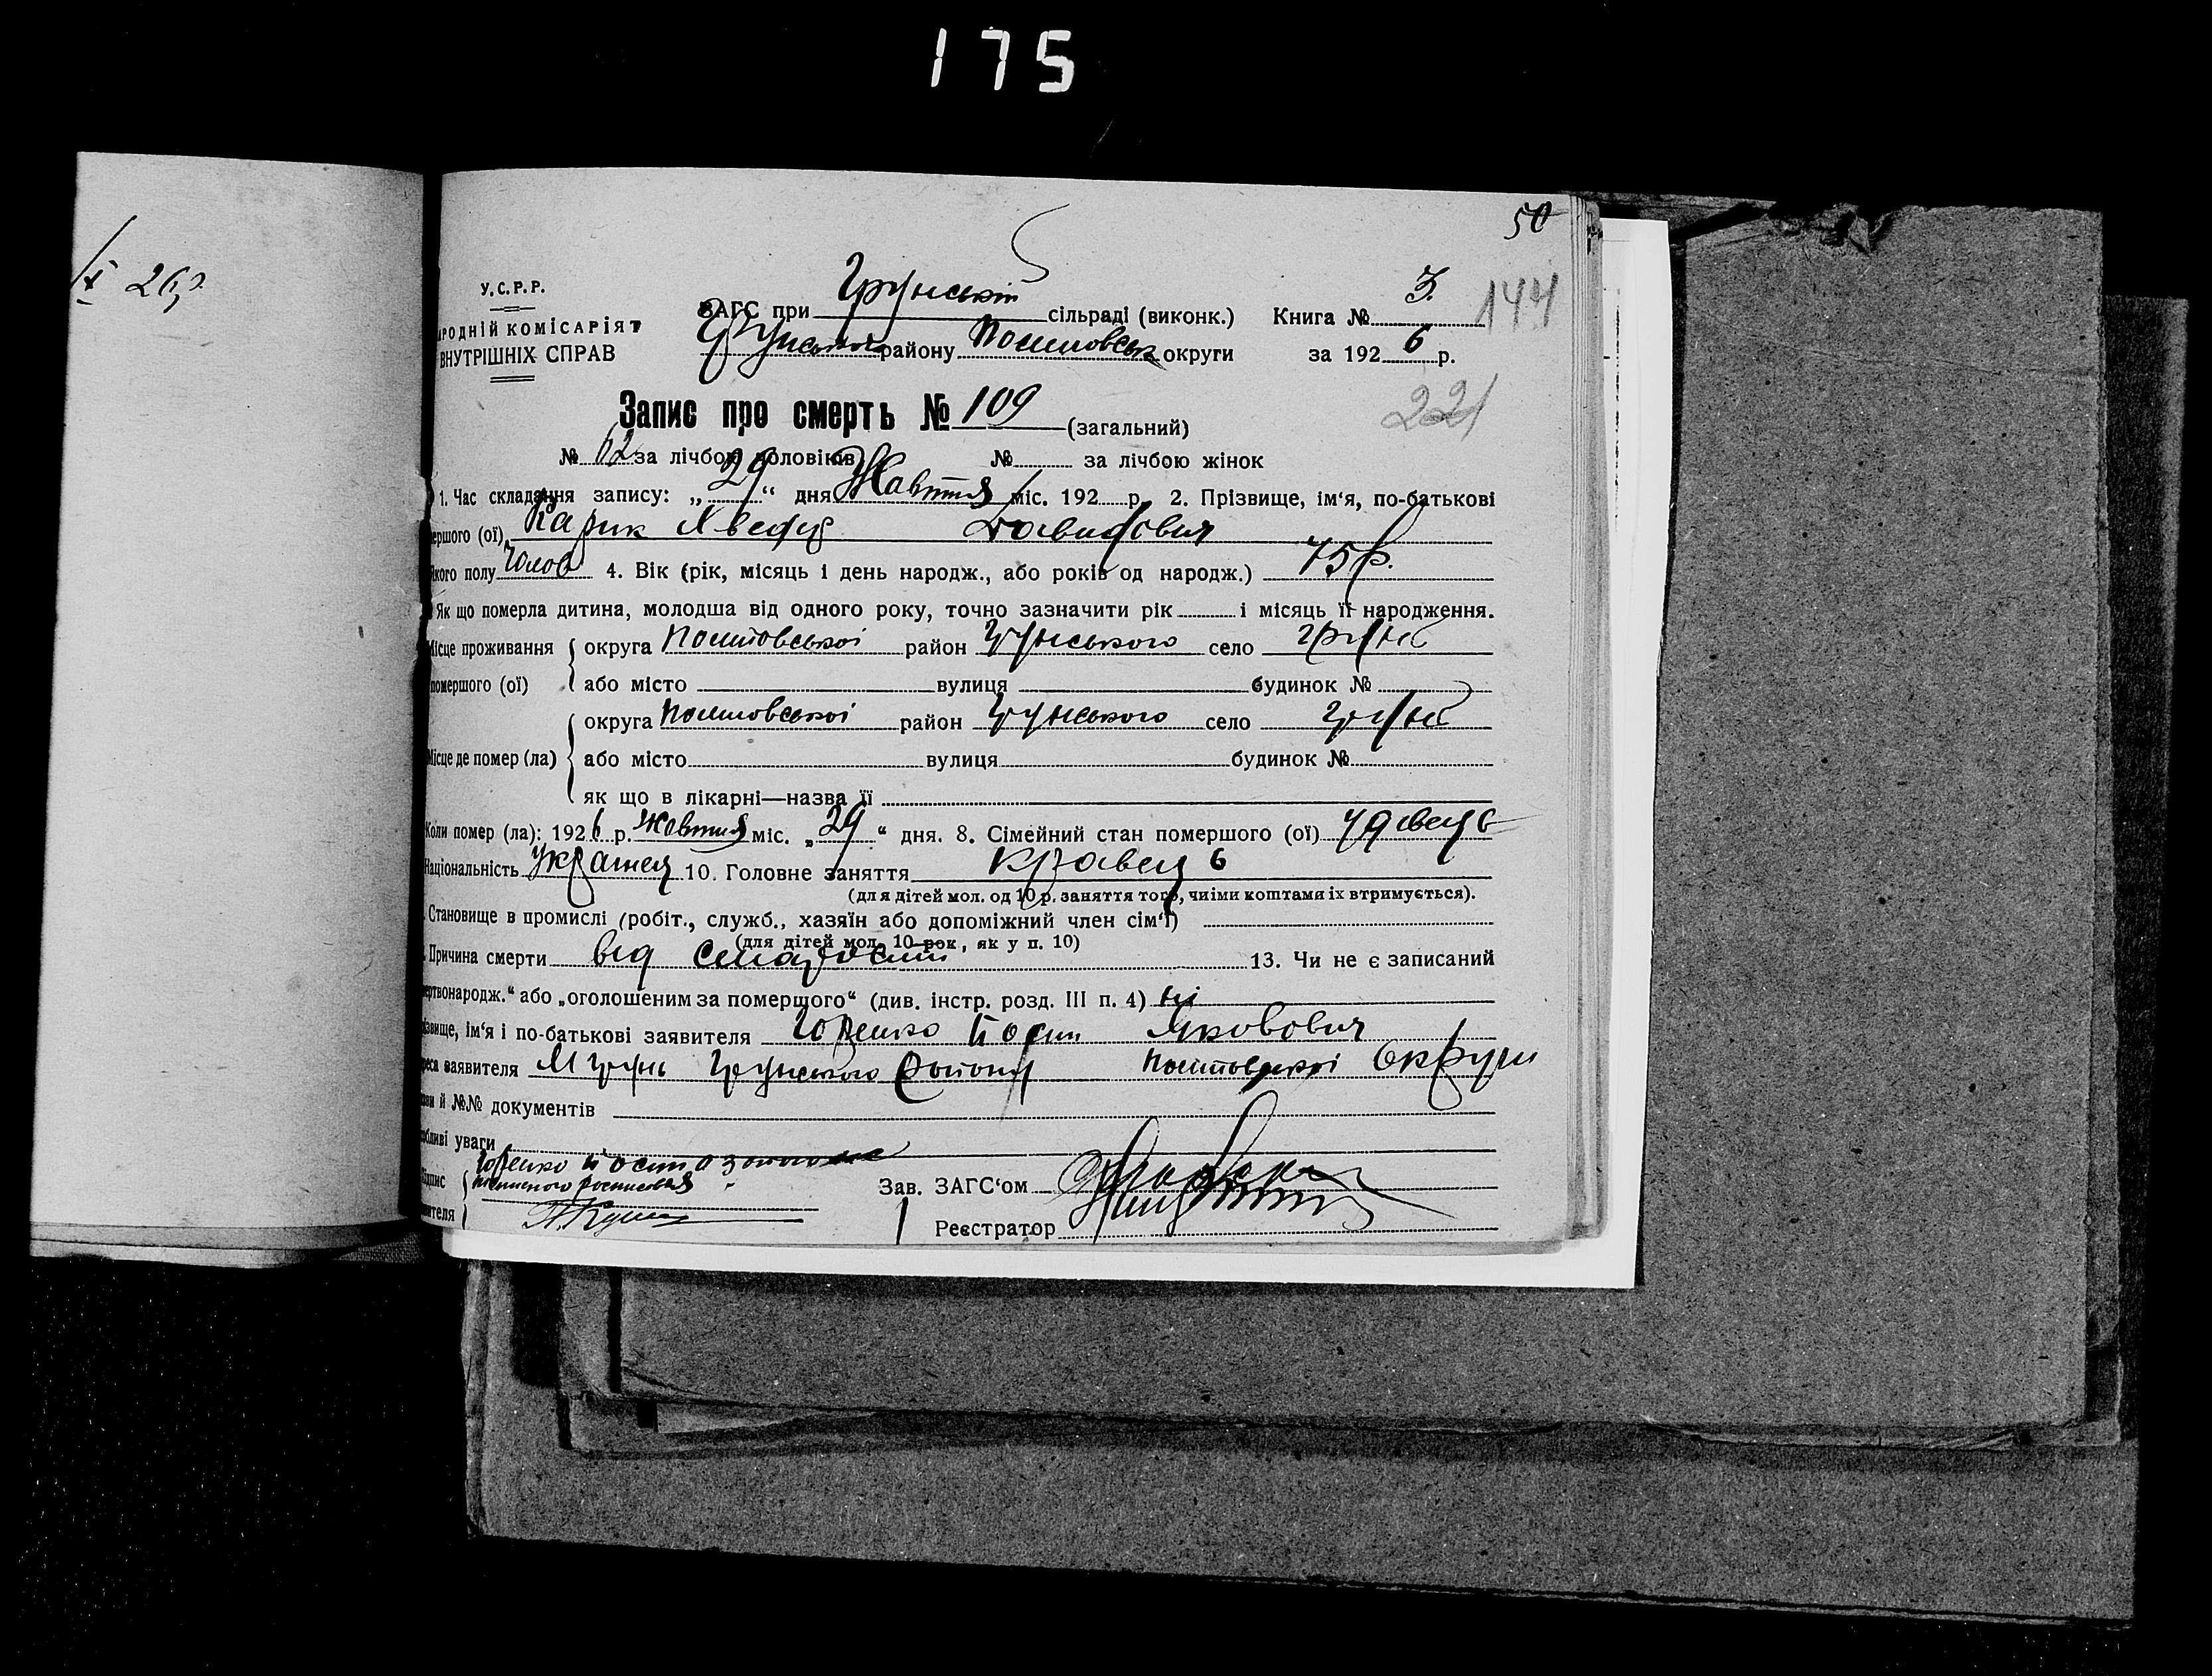 175
50
26 р.
У.С.Р.Р.
ЗАГС при Грунській сільраді (виконк.) Книга № 3.
144
РОДНІЙ КОМІСАРІЯТ
ВНУТРІШНІХ СПРАВ
Грунського району Полтовськ округи за 1926 р.
Запис про смерть № 109 (загальний)
221
№ 62 за лічбою чоловіків № за лічбою жінок
1. Час складання запису: „29“ дня Жавтня міс. 192 р. 2. Прізвище, ім‘я, по-батькові
ершого (ої) Карик Хведір Давидович
якого полу Чолов 4. Вік (рік, місяць і день народж., або років од народж.) 75 р.
Як що померла дитина, молодша від одного року, точно зазначити рік і місяць її народження.
Місце проживання округа Полтовської район Грунського село Грунь
помершого (ої) або місто вулиця будинок №
округа Полтовської район Грунського село Грунь
Місце де помер (ла) або місто вулиця будинок №
як що в лікарні—назва її
Коли помер (ла): 1926 р. Жовтня міс. „29“ дня. 8. Сімейний стан помершого (ої) удовець
Національність Украінец 10. Головне заняття кравець
(для дітей мол. од 10 р. заняття того, чиїми коштами їх втримується).
Становище в промислі (робіт., служб., хазяїн або допоміжний член сім‘ї)
(для дітей мол. 10 рок, як у п. 10)
Причина смерти від старости 13. Чи не є записаний
ертвонародж.“ або „оголошеним за помершого“ (див. інстр. розд. III п. 4) ні
звище, ім‘я і по-батькові заявителя Йосип Яковович
реса заявителя М Грунь Грунського Району Полтовської Округи
ви й №№ документів
обливі уваги
Йосип а за його
підпис
Зав. ЗАГС‘ом
ителя
Реєстратор